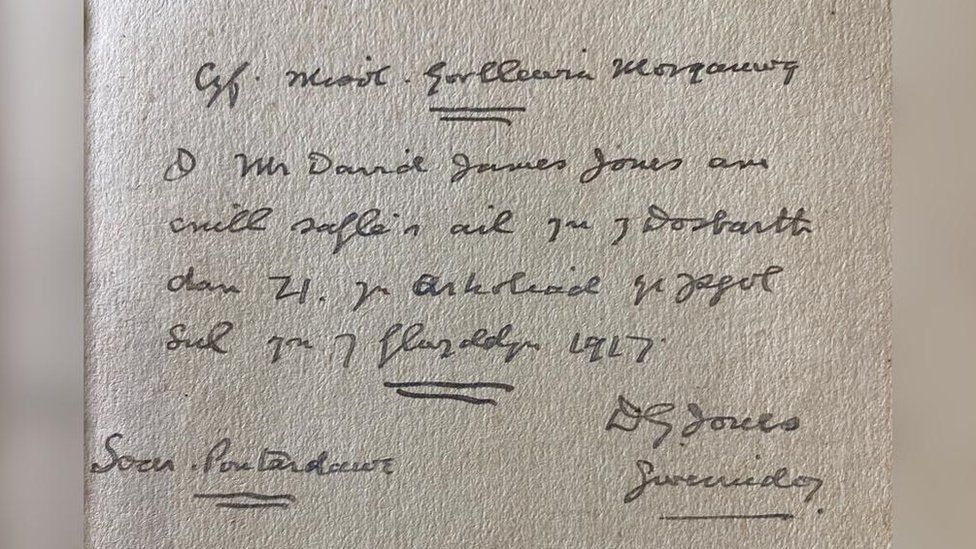 Cyf. Misol. Gorllewin Morganwg
I Mr David James Jones am
enill safle'r ail yn y Dosbarth
dan 21. yn Arholiad yr Ysgol
Sul yn y flwyddyn 1917.
D G Jones
Soar. Pontardawe